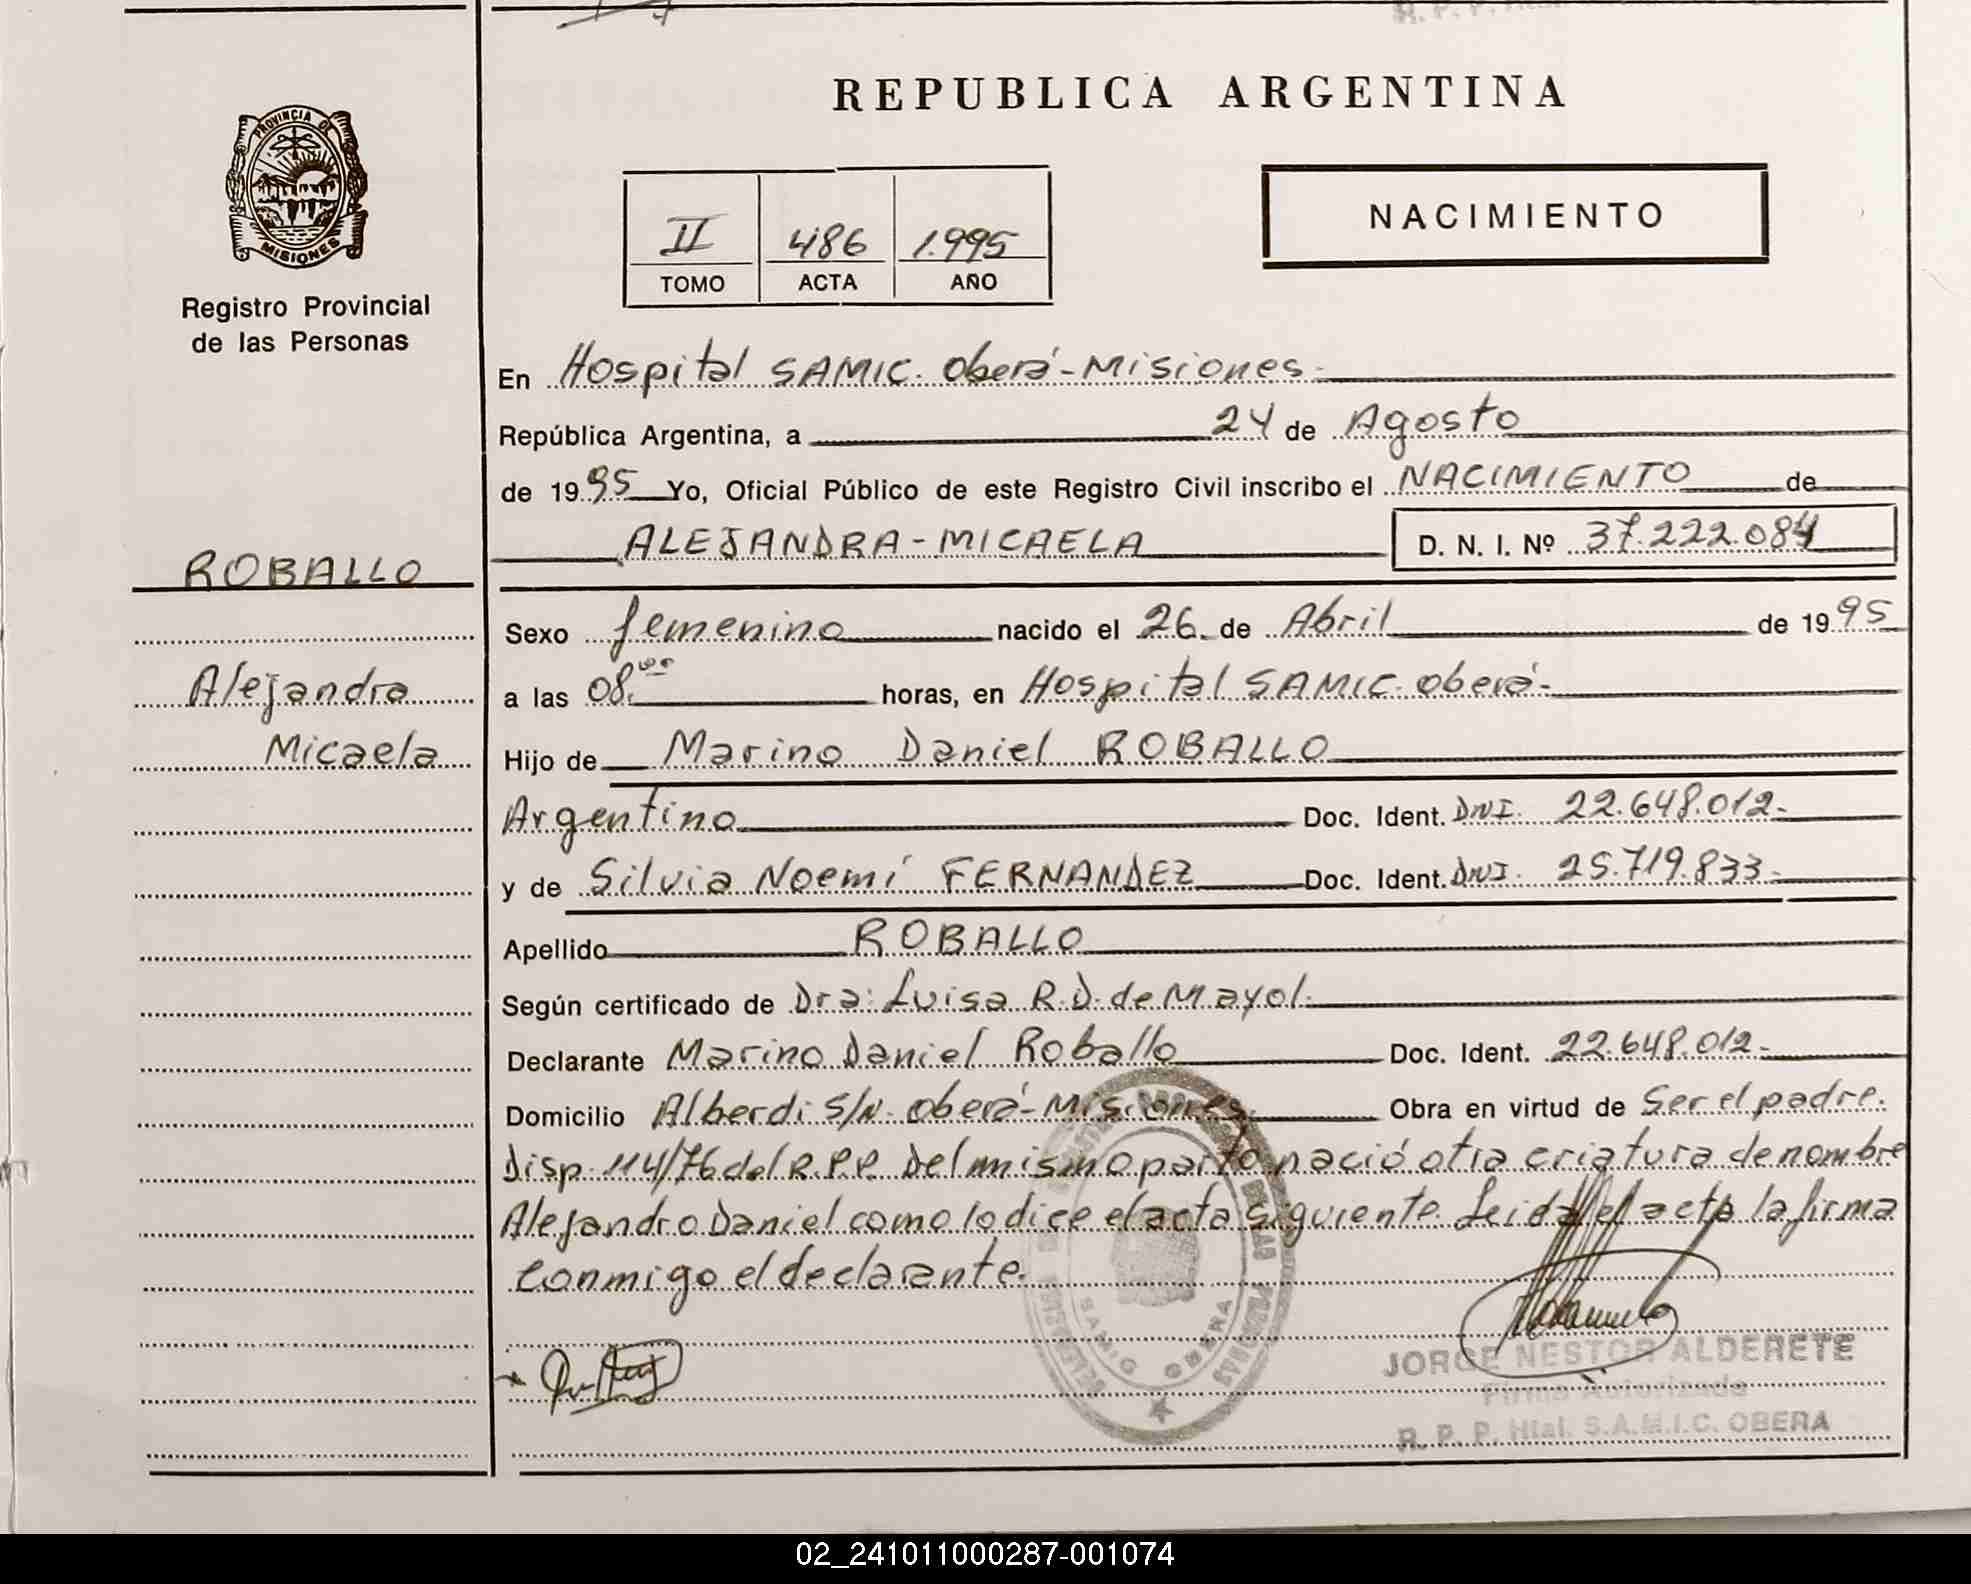 REPUBLICA ARGENTINA
PROVINCIA DE
MISIONES
Registro Provincial
de las Personas
II 486 1.995
TOMO ACTA AÑO
NACIMIENTO
En Hospital SAMIC. Oberá-Misiones.
República Argentina, a 24 de Agosto
de 1995 Yo, Oficial Público de este Registro Civil inscribo el NACIMIENTO de
ALEJANDRA-MICAELA D. N. I. Nº 37.222.084
ROBALLO
Alejandra
Micaela
Sexo femenino nacido el 26 de Abril de 1995
a las 08. horas, en Hospital SAMIC oberá-
Hijo de Marino Daniel ROBALLO
Argentino Doc. Ident. DNI. 22.648.012-
y de Silvia Noemí FERNANDEZ Doc. Ident. DNI. 25.719.833-
Apellido ROBALLO
Según certificado de Dra: Luisa R.D. de Mayol.
Declarante Marino Daniel Roballo Doc. Ident. 22.648.012-
Domicilio Alberdi S/N. oberá-Misiones. Obra en virtud de Ser el padre.
Disp. 114/76 del R.P.P. Del mismo parto nació otra criatura de nombre
Alejandro Daniel como lo dice el acta siguiente. Leida el acta la firma
conmigo el declarante.
SAMIC OBERA
JORGE NESTOR ALDERETE
Firma Autorizada
R. P. P. Htal. S.A.M.I.C. OBERA
02_241011000287-001074